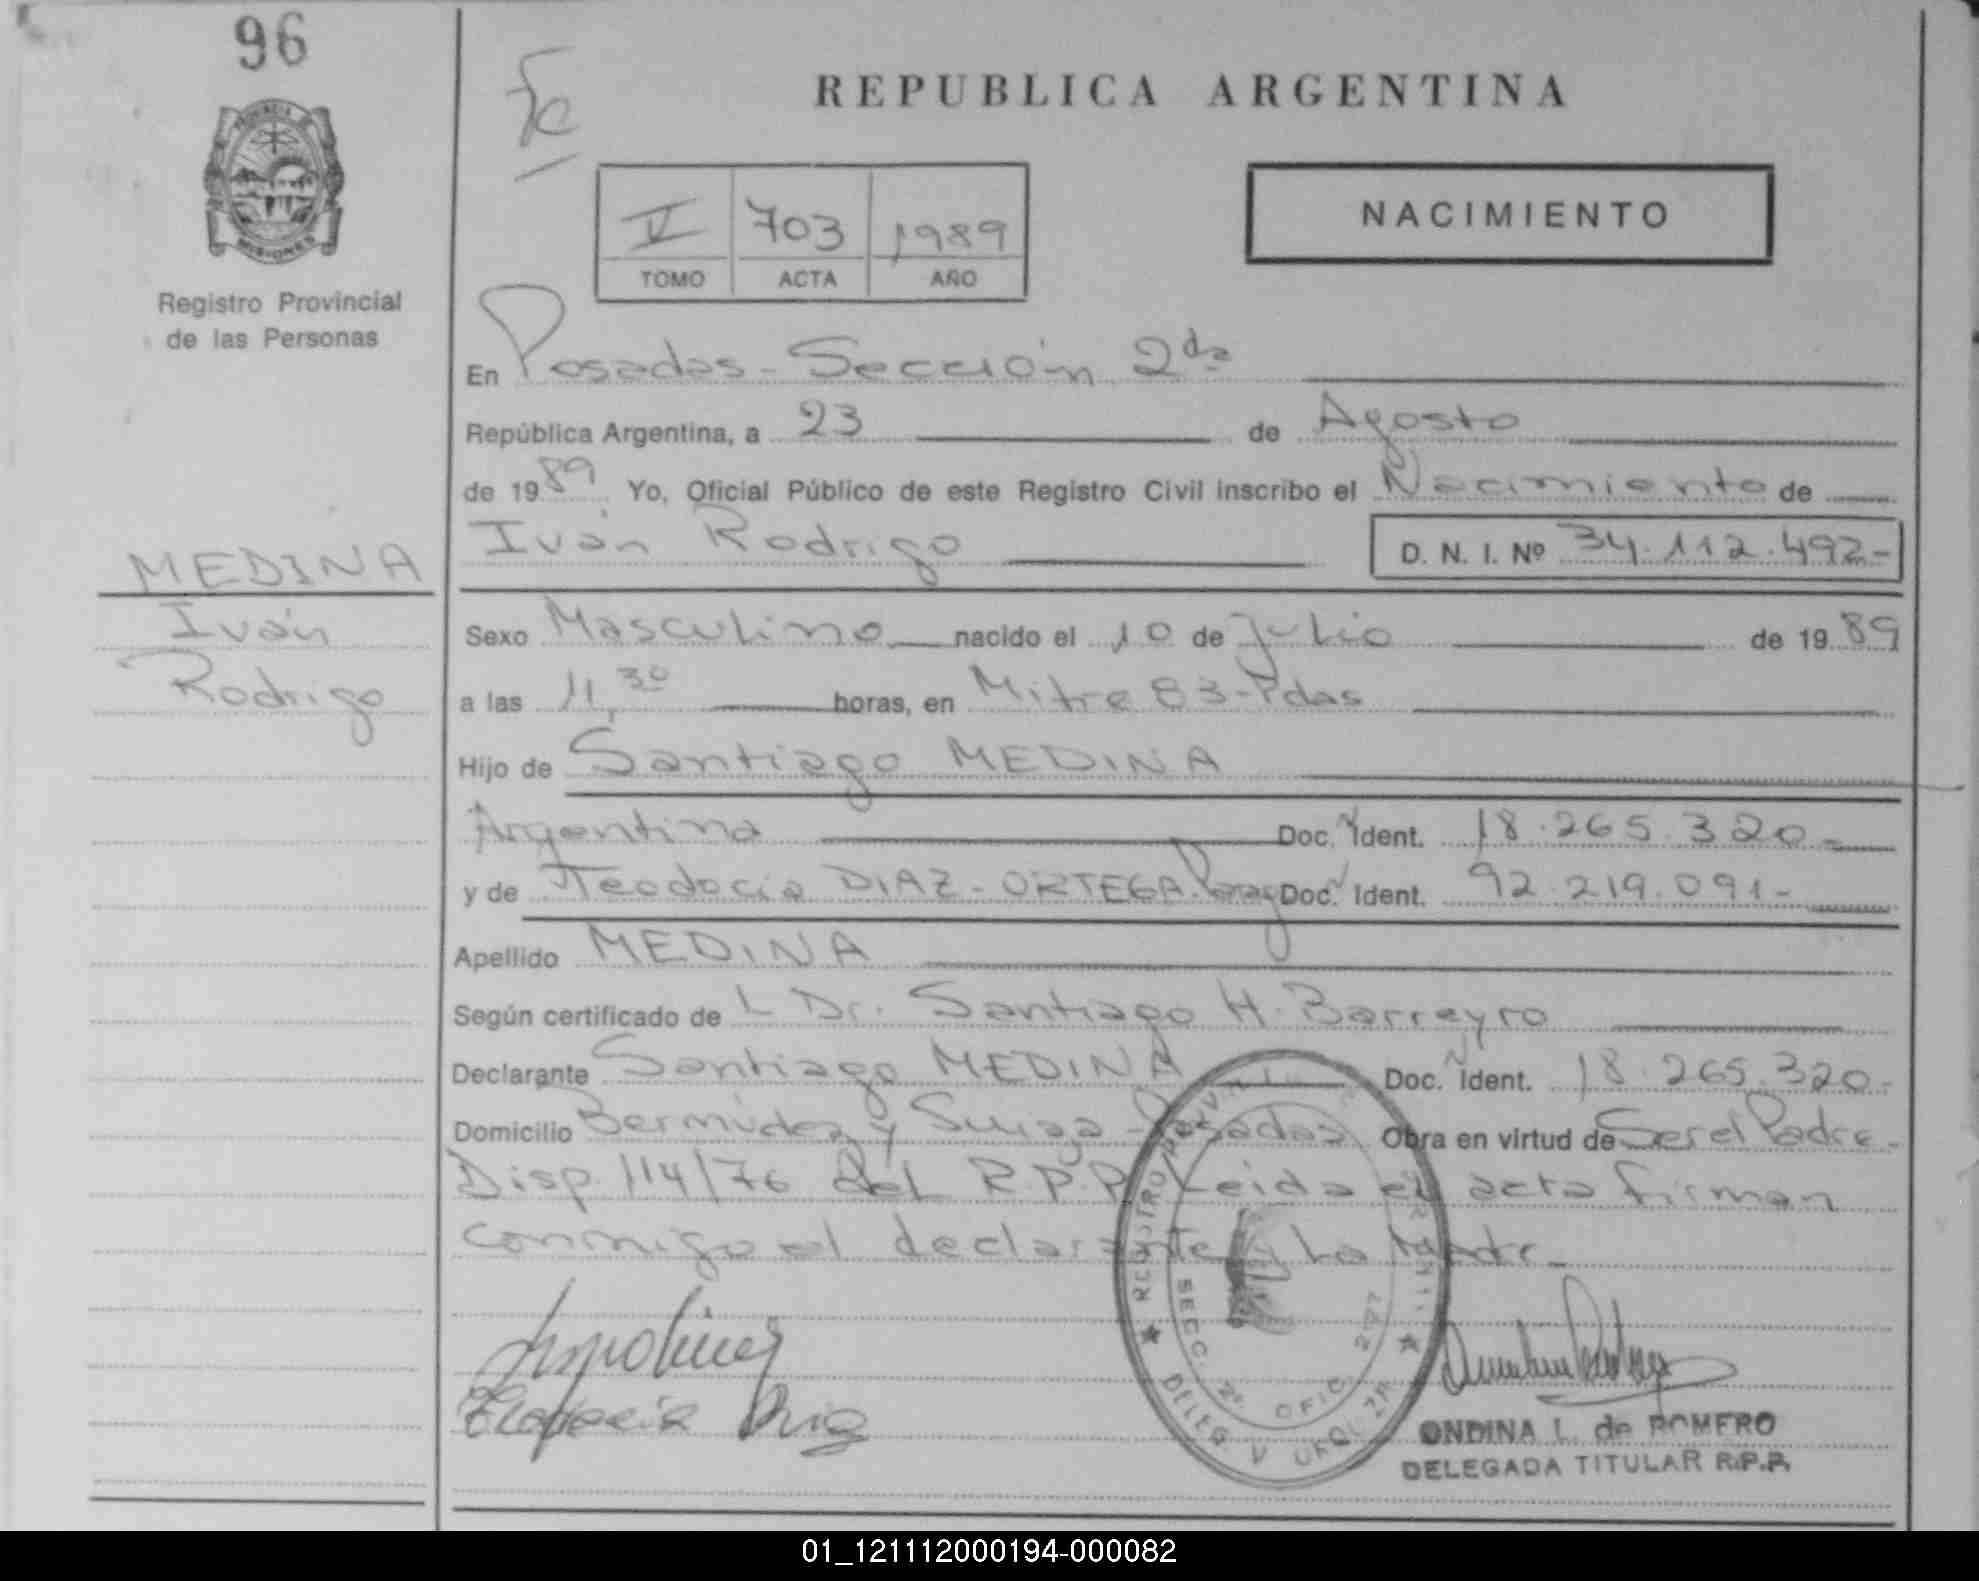 96
Fc
REPUBLICA ARGENTINA
PROVINCIA DE
MISIONES
Registro Provincial
de las Personas
V 703 1989
TOMO ACTA AÑO
NACIMIENTO
En Posadas - Sección 2da
República Argentina, a 23 de Agosto
de 1989 Yo, Oficial Público de este Registro Civil inscribo el Nacimiento de
Iván Rodrigo D. N. I. Nº 34.112.492-
MEDINA
Iván
Rodrigo
Sexo Masculino nacido el 10 de Julio de 1989
a las 11,30 horas, en Mitre 83-Pdas
Hijo de Santiago MEDINA
Argentina Doc. Ident. 18.265.320-
y de Teodocia DIAZ-ORTEGA. Doc. Ident. 92.219.091-
Apellido MEDINA
Según certificado de L Dr. Santiago H. Barreyro
Declarante Santiago MEDINA Doc. Ident. 18.265.320-
Domicilio Bermúdez y Suiza - Posadas Obra en virtud de Ser el Padre-
Disp. 114/76 del R.P.P. Leida el acta firman
conmigo el declarante y la Madre-
SECC. 2º. OFIC.
ONDINA L. de ROMERO
DELEGADA TITULAR R.P.P.
01_121112000194-000082